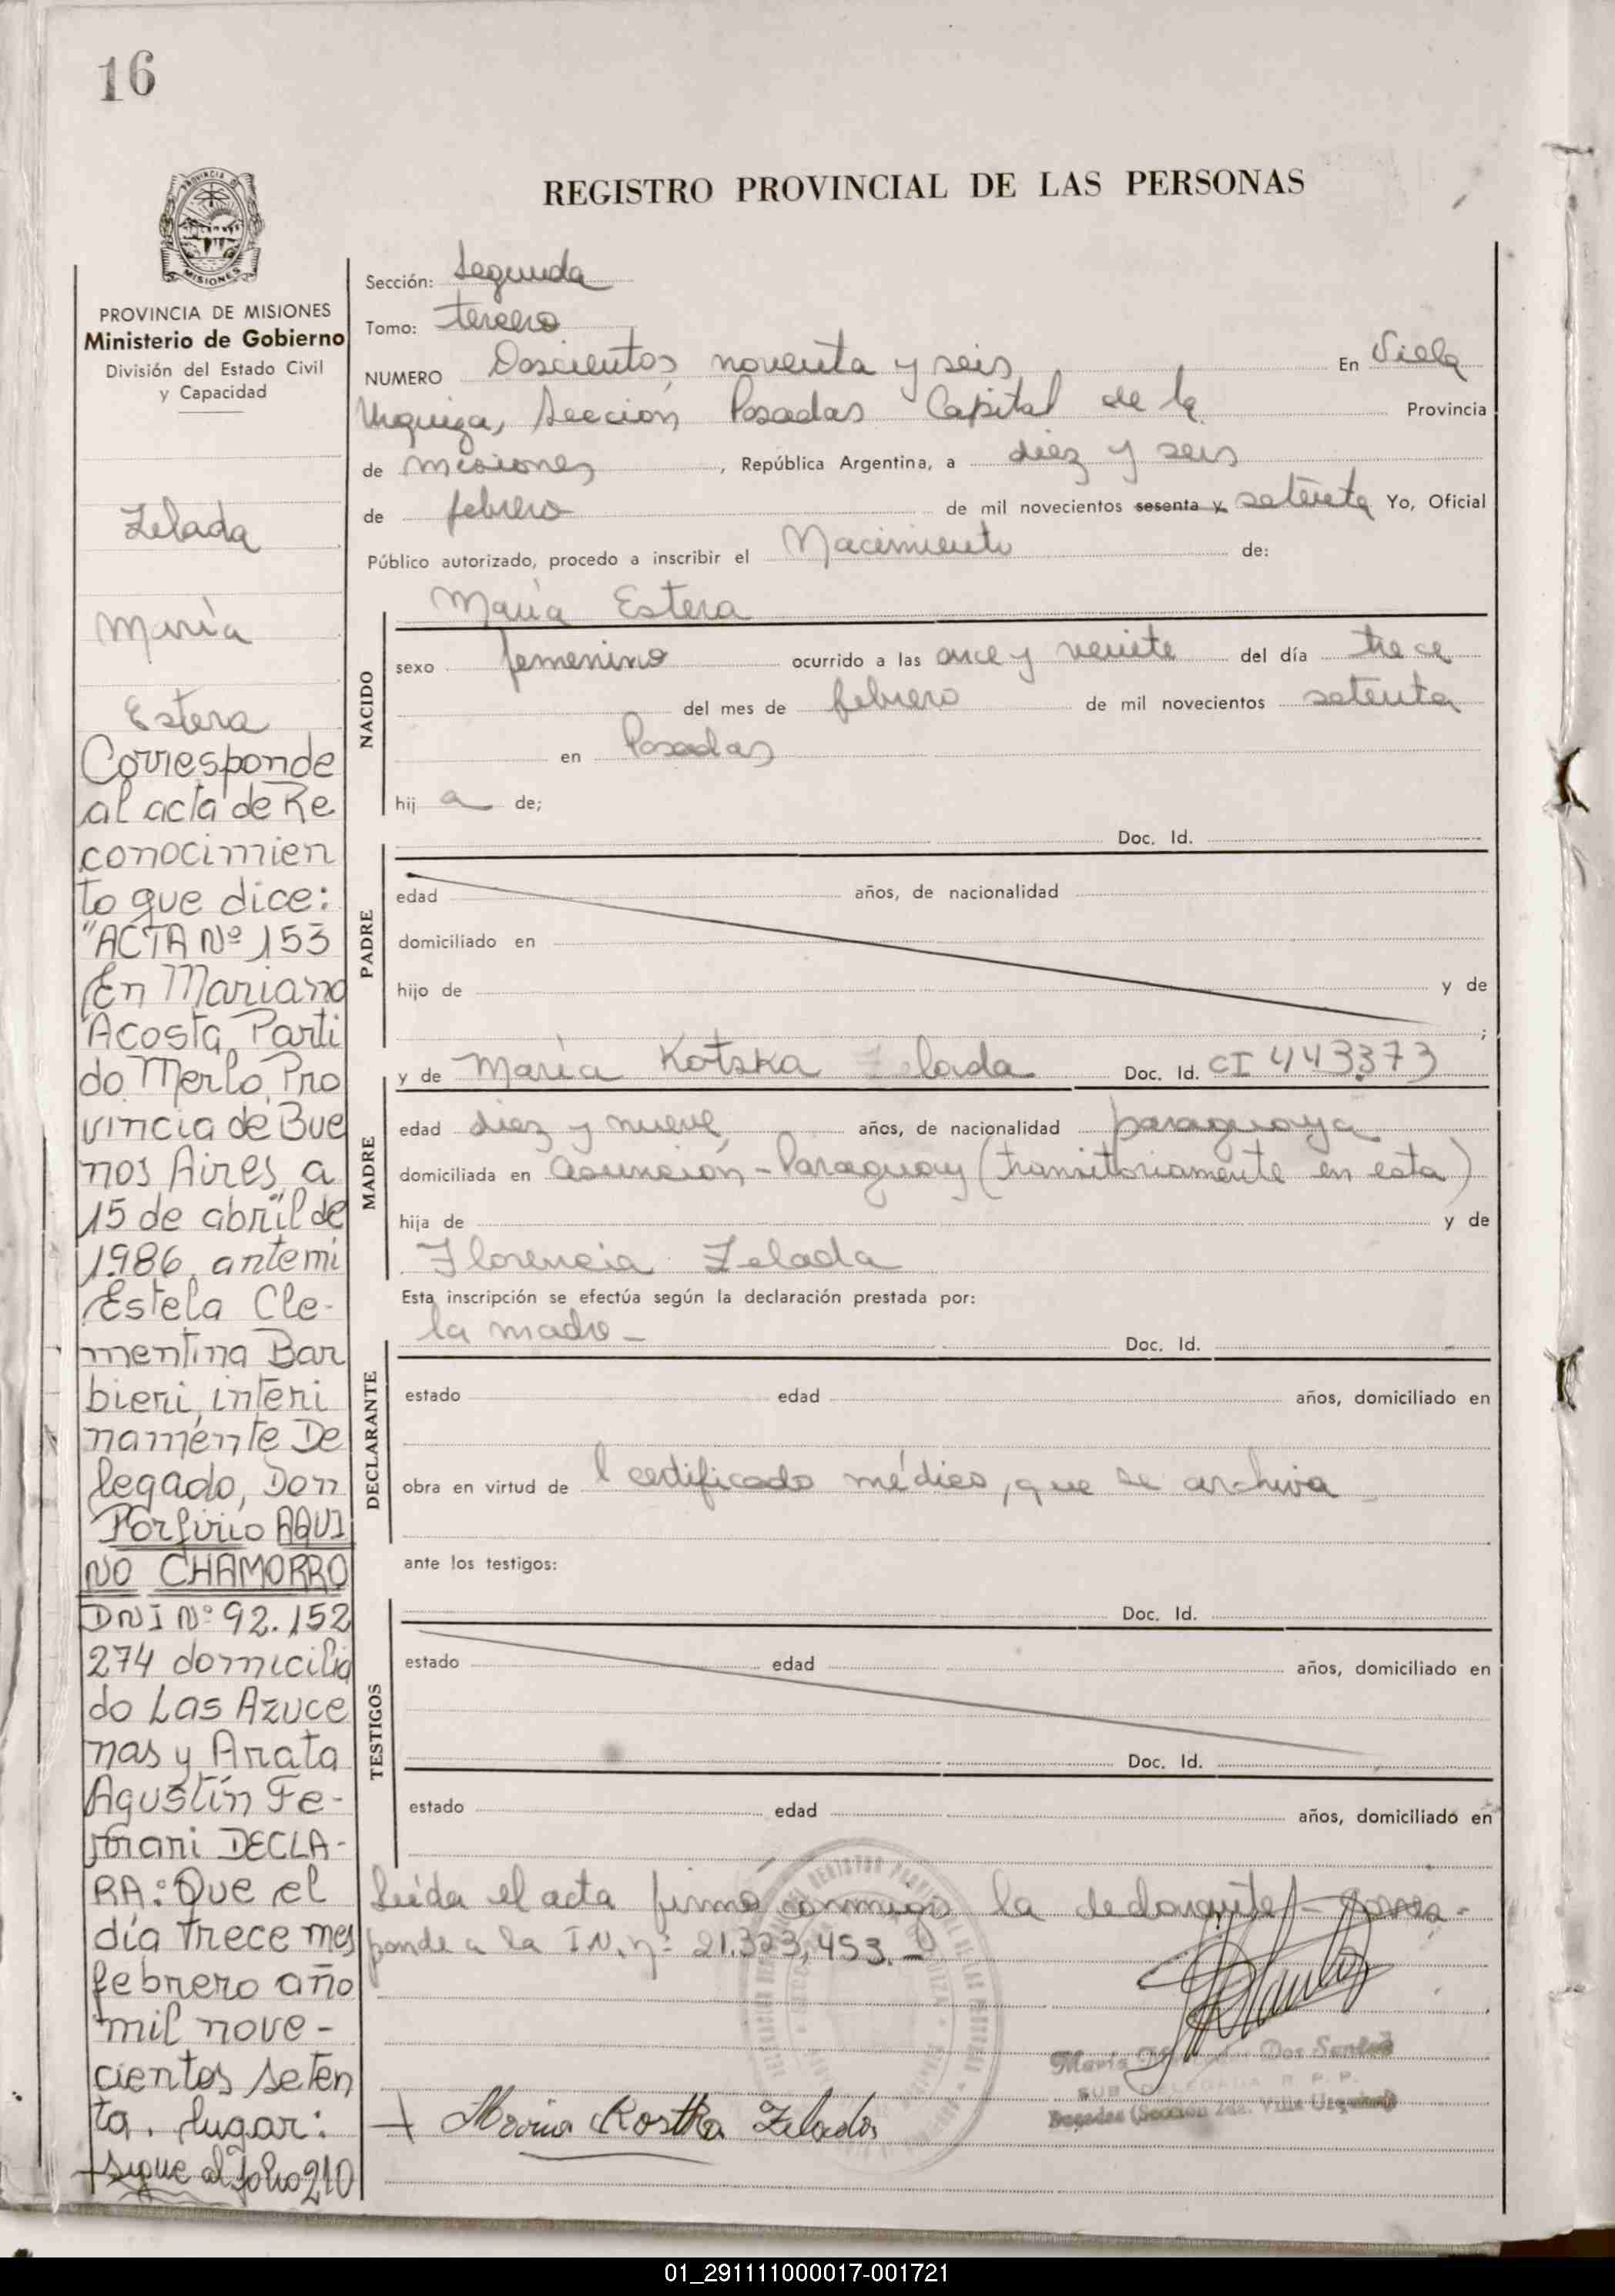 16
PROVINCIA DE
MISIONES
REGISTRO PROVINCIAL DE LAS PERSONAS
PROVINCIA DE MISIONES
Ministerio de Gobierno
División del Estado Civil
y Capacidad
Zelada
María
Estera
Corresponde
al acta de Re
conocimien
to que dice:
"ACTA Nº 153
En Mariano
Acosta, Parti
do Merlo, Pro
vincia de Bue
nos Aires, a
15 de abril de
1986, ante mi
Estela Cle-
mentina Bar
bieri, interi
namente De
legado, Don
Porfirio AQUI
NO CHAMORRO
DNI Nº 92.152
274 domicilia
do Las Azuce
nas y Arata
Agustín Fe-
rrari DECLA-
RA: Que el
día trece mes
febrero año
mil nove-
cientos seten
ta. lugar:
sigue al folio 210
Sección: Segunda
Tomo: tercero
NUMERO Doscientos noventa y seis En Villa
Urquiza, Sección Posadas Capital de la Provincia
de Misiones, República Argentina, a diez y seis
de febrero de mil novecientos sesenta y setenta Yo, Oficial
Público autorizado, procedo a inscribir el Nacimiento de:
María Estera
NACIDO
sexo femenino ocurrido a las once y veinte del día trece
del mes de febrero de mil novecientos setenta
en Posadas
hij a de;
Doc. Id.
PADRE
edad años, de nacionalidad
domiciliado en
hijo de y de
;
y de María Kotska Zelada Doc. Id. CI 443373
MADRE
edad diez y nueve años, de nacionalidad paraguaya
domiciliada en Asunción - Paraguay (transitoriamente en esta)
hija de y de
Florencia Zelada
Esta inscripción se efectúa según la declaración prestada por:
la madre - Doc. Id.
DECLARANTE
estado edad años, domiciliado en
obra en virtud de l certificado médico, que se archiva
ante los testigos:
Doc. Id.
TESTIGOS
estado edad años, domiciliado en
Doc. Id.
estado edad años, domiciliado en
Leída el acta firmó conmigo la declarante - Corres-
ponde a la I.N. nº 21.323,453.-
María Dos Santos
SUB DELEGADA R. P. P.
Posadas (Sección 2da. Villa Urquiza)
Maria Kostka Zelada
01_291111000017-001721